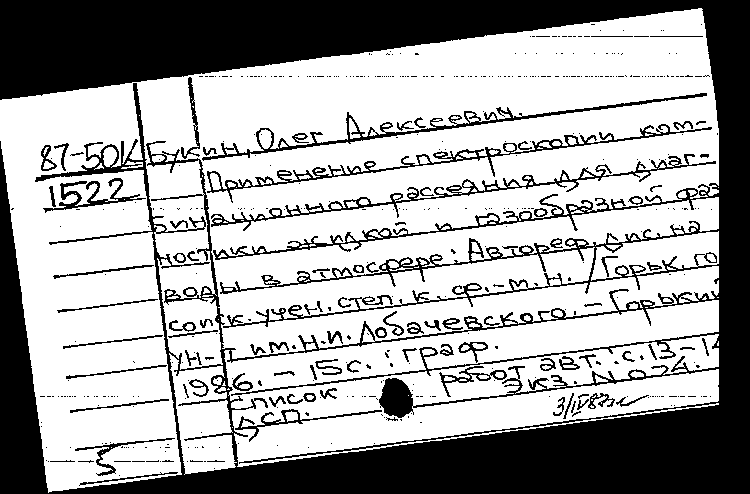 87-50К Букин, Олег Алексеевич.
1522 Применение спектроскопии ком-
бинационного рассеяния для диаг-
ностики жидкой и газообразной фаз
воды в атмосфере: Автореф. дис. на
соиск. учен. степ. к. ф.-м. н. / Горьк. го
ун-т им. Н.И. Лобачевского. - Горький
1986. - 15 с. : граф.
Список работ авт.: с. 13-14
ДСП. Экз. N 024.
5